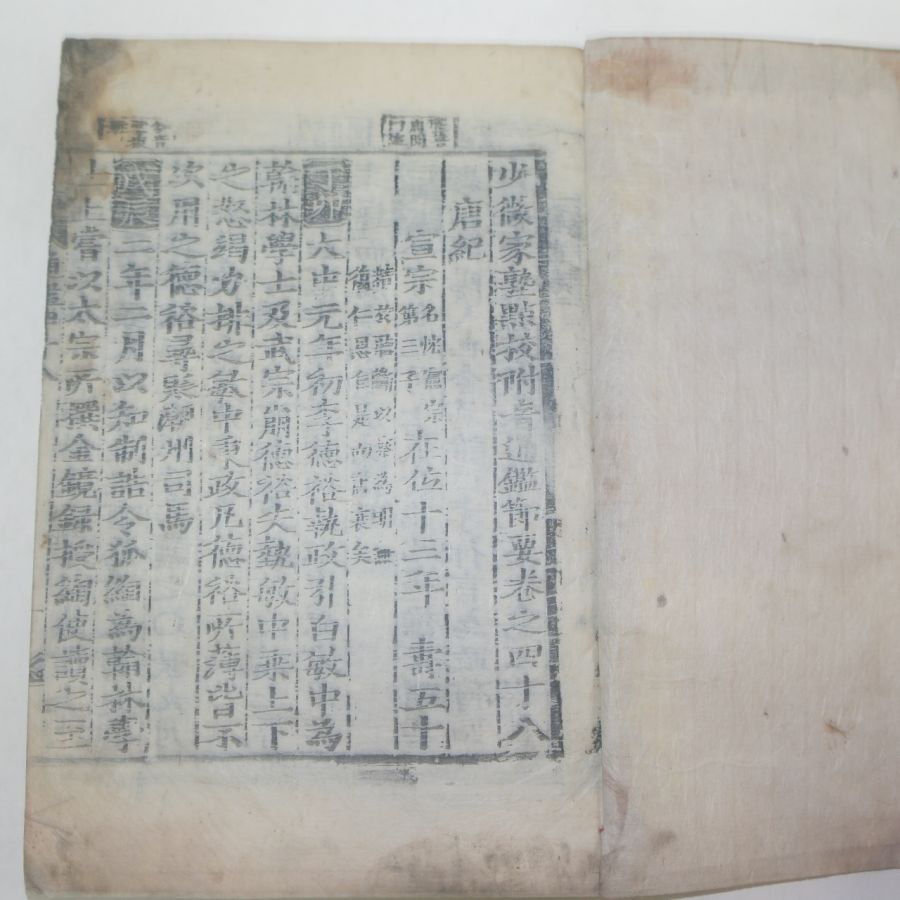 少微家塾點校附音通鑑節要卷之四十八
唐紀
宣宗 名忱憲宗第三子 在位十三年 壽五十
精於聽斷以察為明無
復仁恩自是唐衰矣
丁卯 大中元年初李德裕執政引白敏中為
翰林學士及武宗崩德裕失勢敏中乗上下
之怒竭力排之敏中秉政凡德裕所薄皆不
次用之德裕尋貶潮州司馬
戊辰 二年二月以知制誥令狐綯為翰林學
士上嘗以太宗所撰金鏡録授綯使讀之至